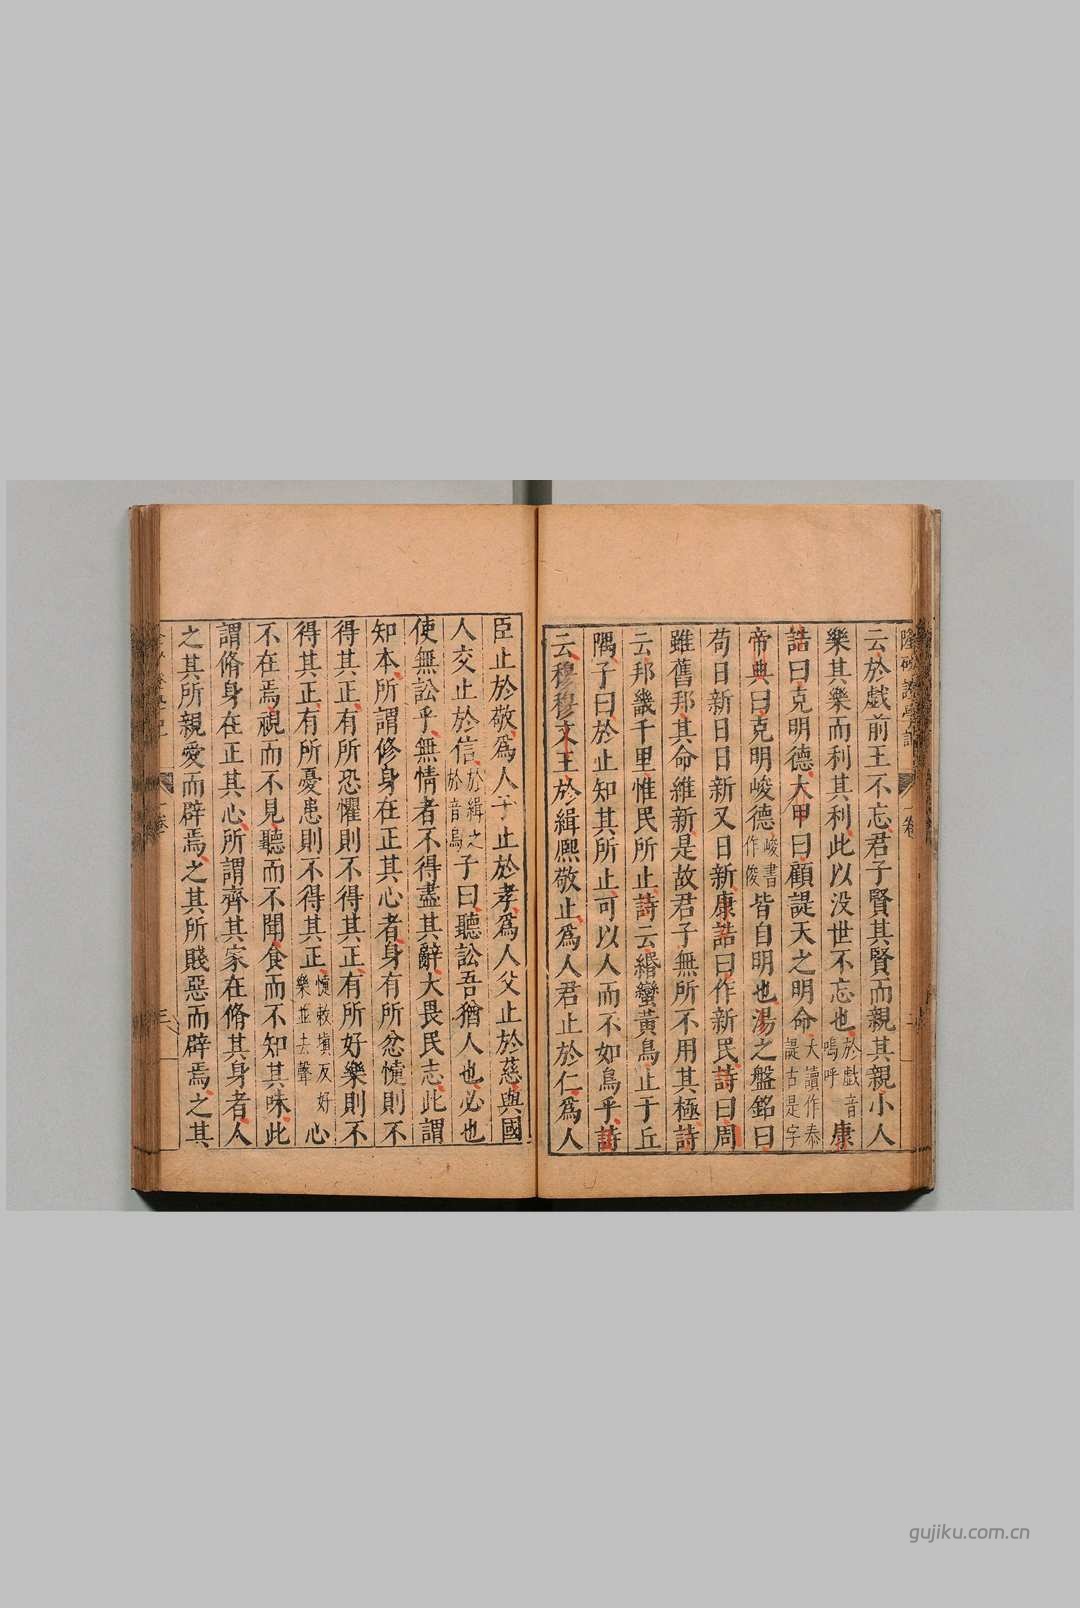 云於戲前王不忘君子賢其賢而親其親小人
樂其樂而利其利此以没世不忘也於戲音嗚呼康
誥曰克明德大甲曰顧諟天之明命大讀作泰諟古是字
帝典曰克明峻德峻書作俊皆自明也湯之盤銘曰
苟日新日日新又日新康誥曰作新民詩曰周
雖舊邦其命維新是故君子無所不用其極詩
云邦畿千里惟民所止詩云緡蠻黃鳥止于丘
隅子曰於止知其所止可以人而不如鳥乎詩
云穆穆文王於緝熈敬止爲人君止於仁爲人
臣止於敬爲人子止於孝爲人父止於慈與國
人交止於信於緝之於音烏子曰聽訟吾猶人也必也
使無訟乎無情者不得盡其辭大畏民志此謂
知本所謂修身在正其心者身有所忿懥則不
得其正有所恐懼則不得其正有所好樂則不
得其正有所憂患則不得其正懥敕塡反好樂並去聲心
不在焉視而不見聽而不聞食而不知其味此
謂脩身在正其心所謂齊其家在脩其身者人
之其所親愛而辟焉之其所賤惡而辟焉之其
三
gujiku.com.cn